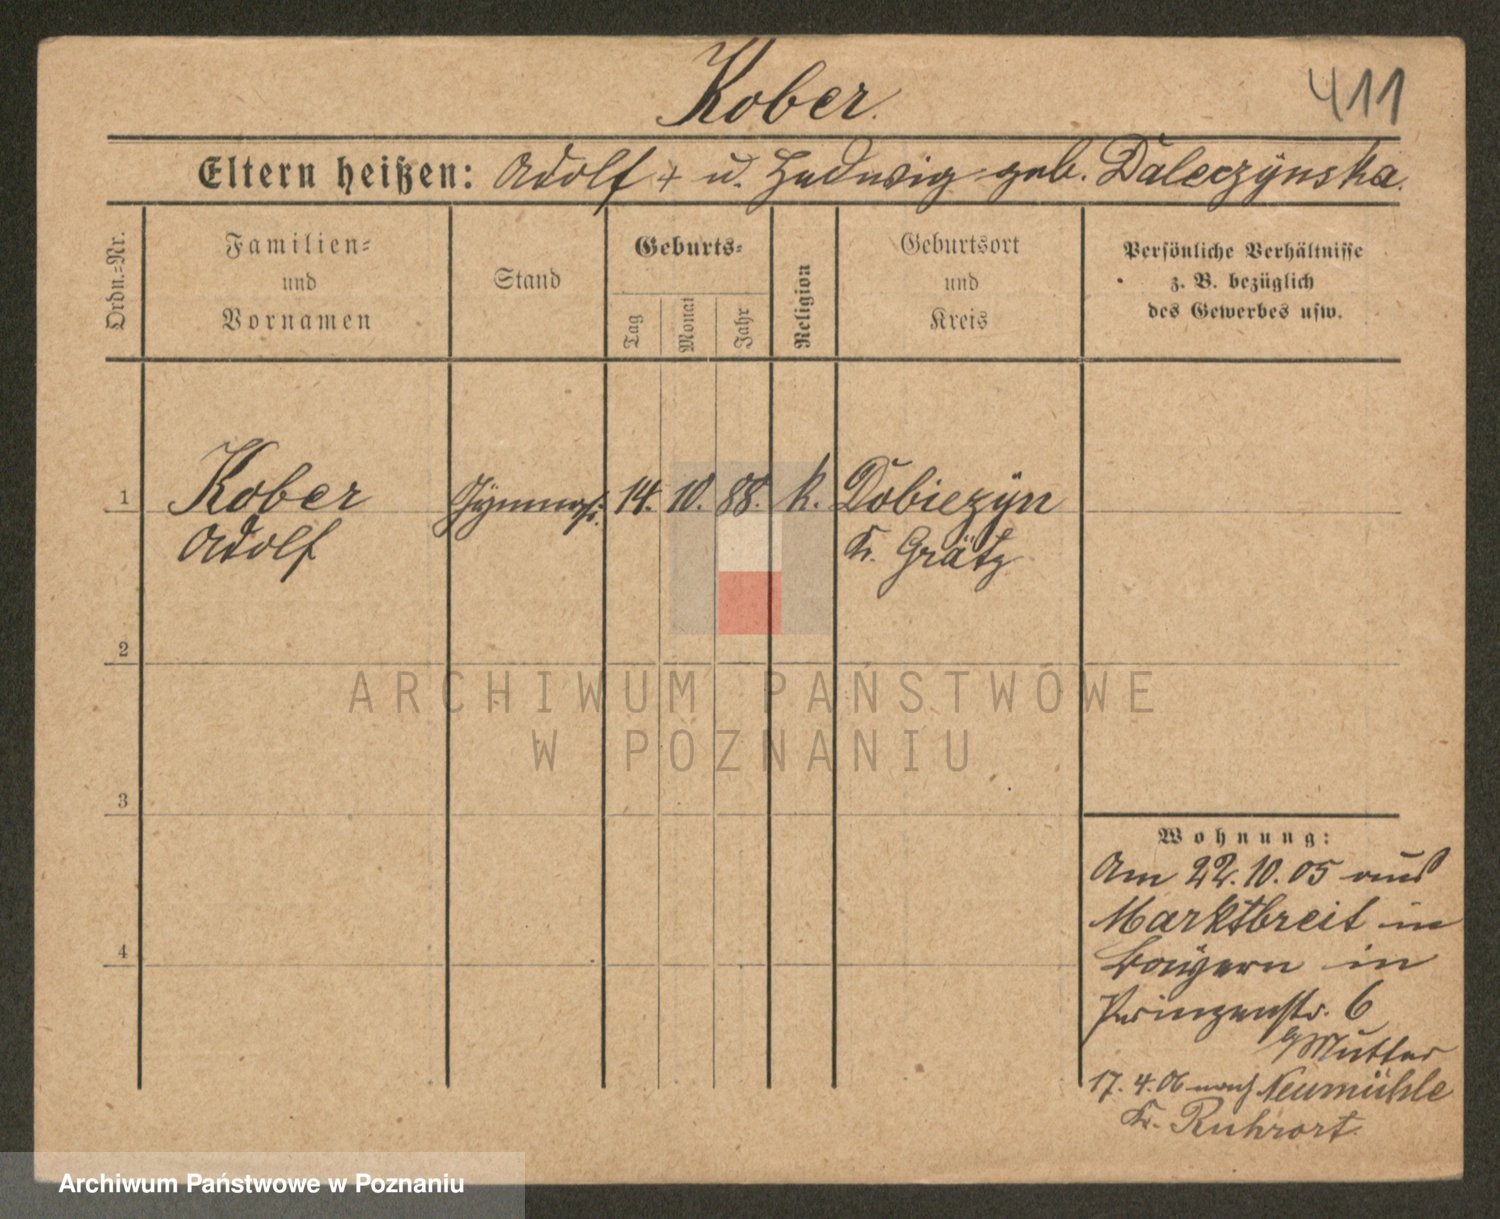 Kober.
411
Eltern heißen: Adolf + u. Hedwig geb. Daleczynska.
Ordn.-Nr.
Familien-
und
Vornamen
Stand
Geburts-
Tag
Monat
Jahr
Religion
Geburtsort
und
Kreis
Persönliche Verhältnisse
z. B. bezüglich
des Gewerbes usw.
1 Kober Gymnas. 14. 10. 88. k. Dobiezyn
Adolf Kr. Grätz
2
ARCHIWUM PAŃSTWOWE
W POZNANIU
3
Wohnung:
Am 22.10.05 aus
Marktbreit in
Bayern in
4
Prinzenstr. 6
b/Mutter
17.4.06 nach Neumühle
Kr. Ruhrort.
Archiwum Państwowe w Poznaniu